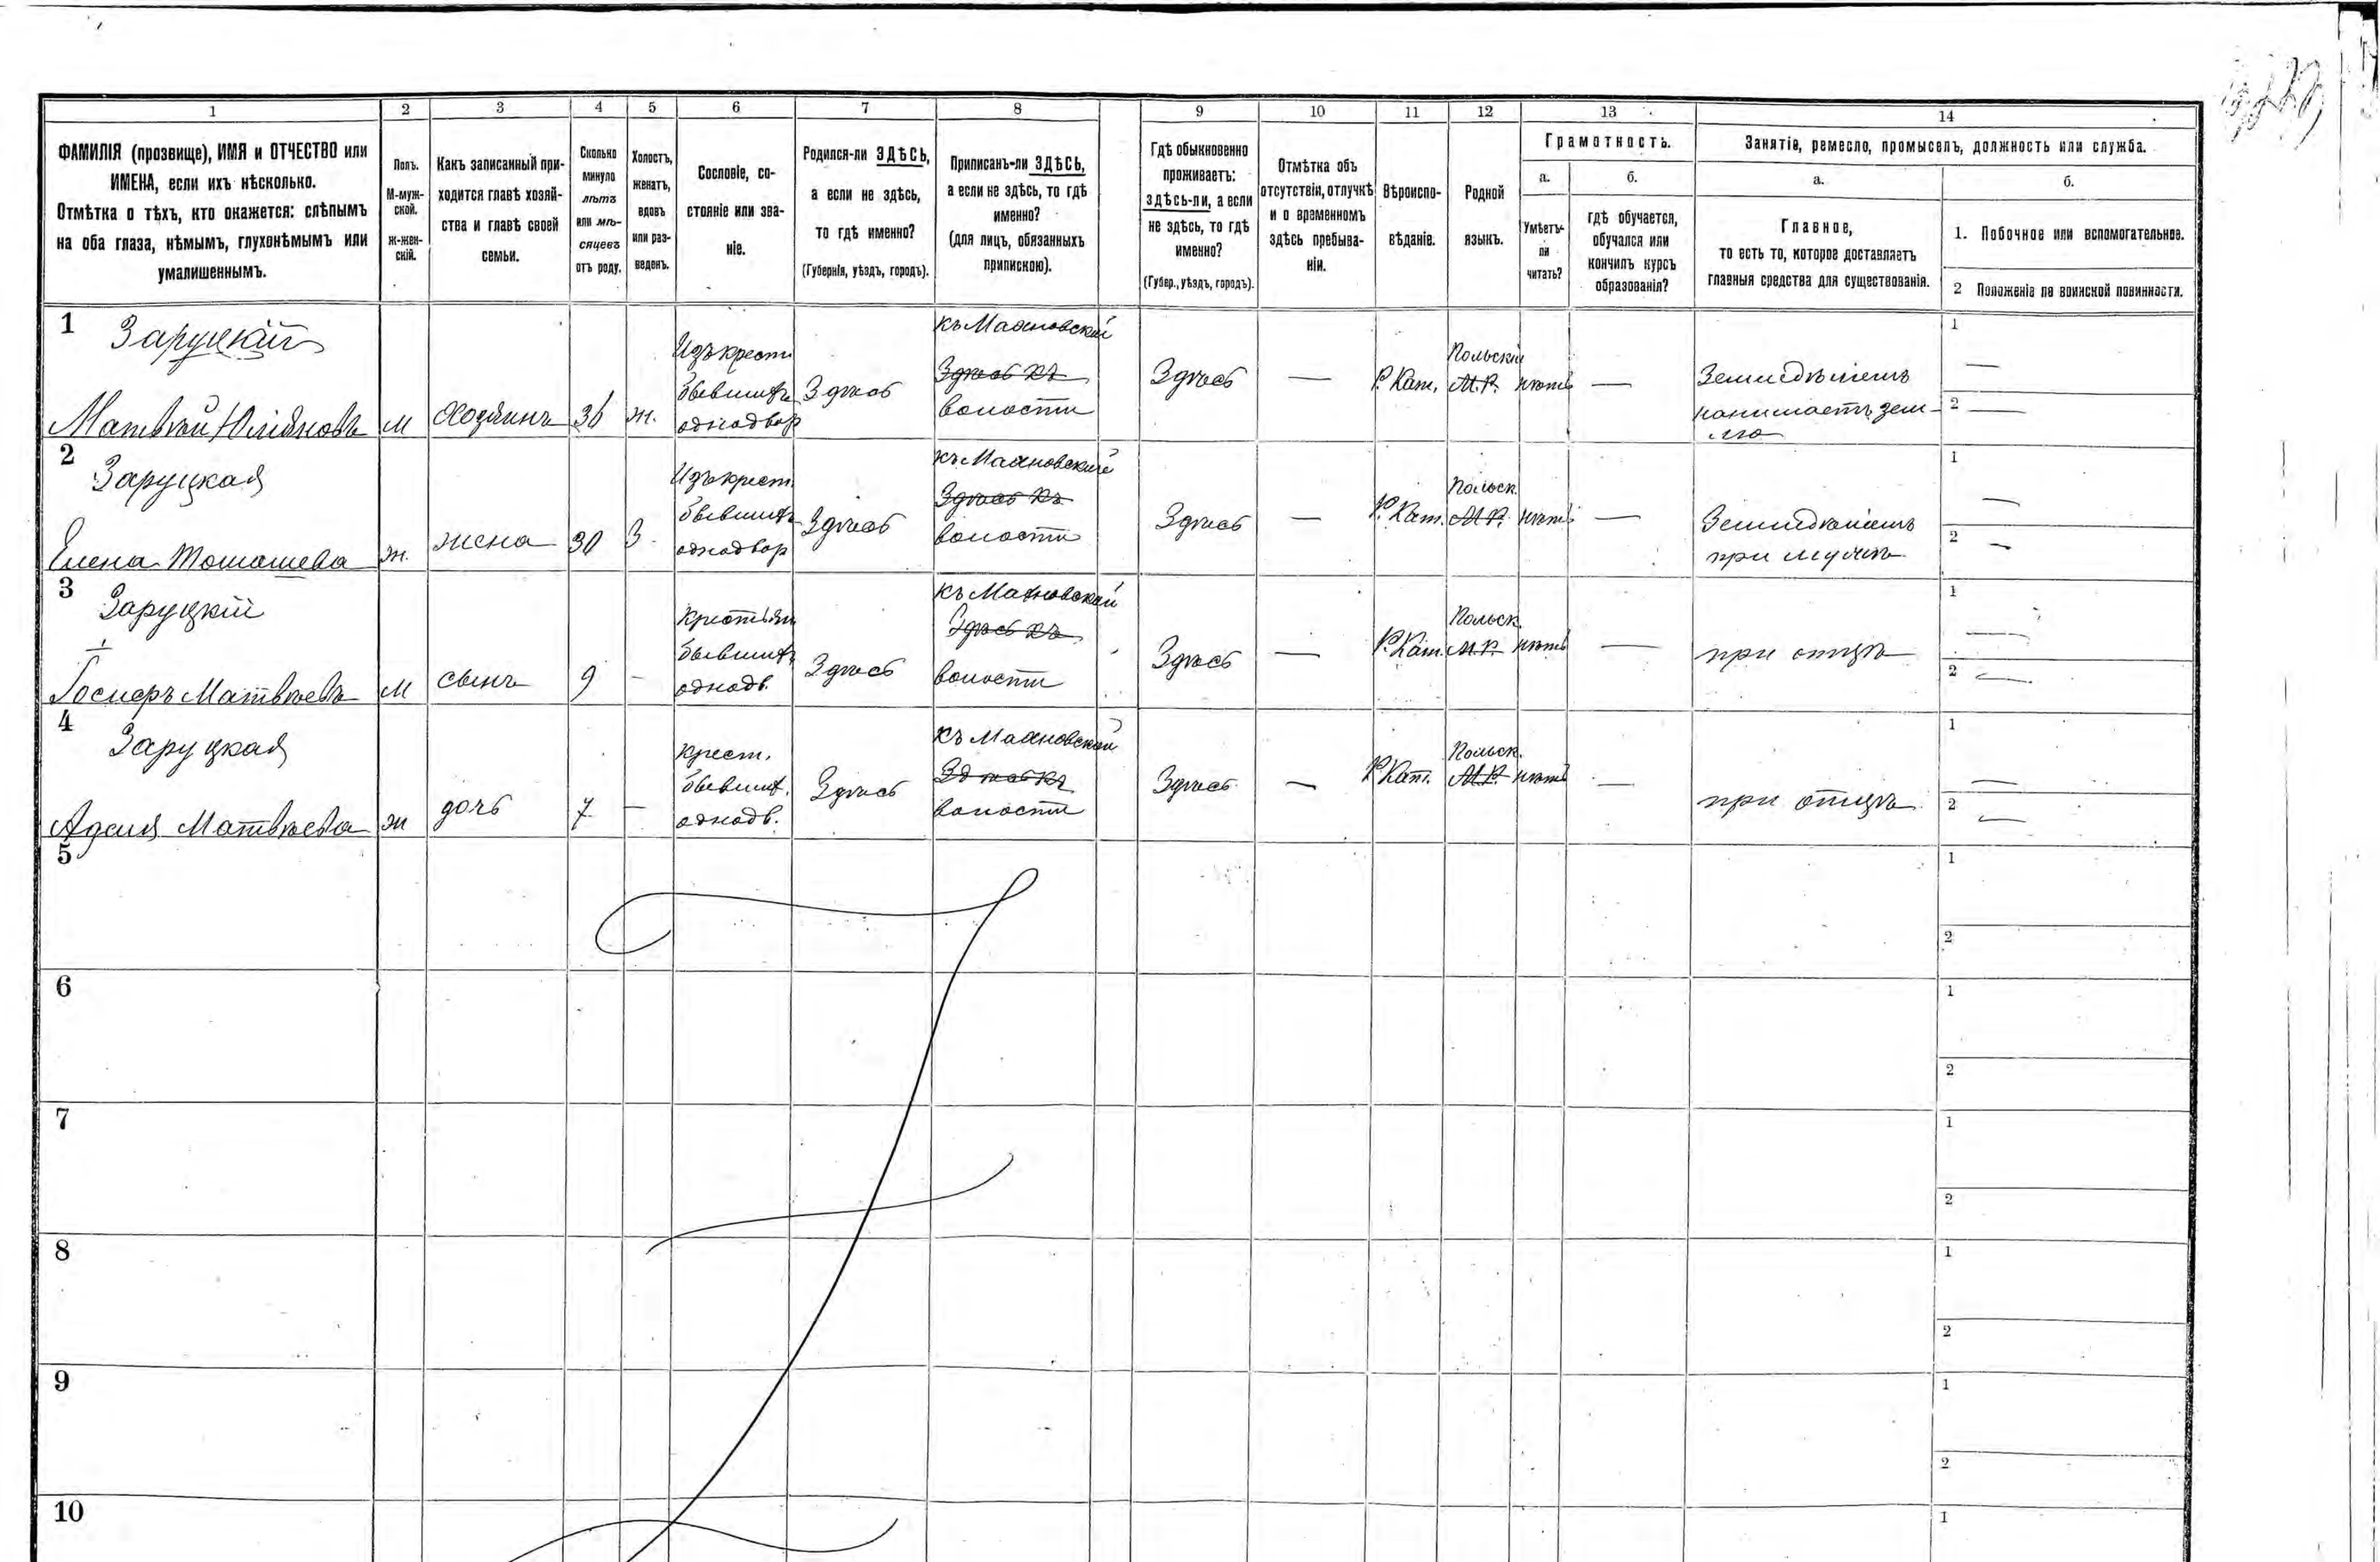 1 2 3 4 5 6 7 8 9 10 11 12 13 14
ФАМИЛІЯ (прозвище), ИМЯ и ОТЧЕСТВО или
ИМЕНА, если ихъ нѣсколько.
Отмѣтка о тѣхъ, кто окажется: слѣпымъ
на оба глаза, нѣмымъ, глухонѣмымъ или
умалишеннымъ.
Полъ.
М-муж-
ской.
Ж-жен-
скій.
Какъ записанный при-
ходится главѣ хозяй-
ства и главѣ своей
семьи.
Сколько
минуло
лѣтъ
или мѣ-
сяцевъ
отъ роду.
Холостъ,
женатъ,
вдовъ
или раз-
веденъ.
Сословіе, со-
стояніе или зва-
ніе.
Родился-ли ЗДѢСЬ,
а если не здѣсь,
то гдѣ именно?
(Губернія, уѣздъ, городъ).
Приписанъ-ли ЗДѢСЬ,
а если не здѣсь, то гдѣ
именно?
(для лицъ, обязанныхъ
припискою).
Гдѣ обыкновенно
проживаетъ:
здѣсь-ли, а если
не здѣсь, то гдѣ
именно?
(Губер., уѣздъ, городъ).
Отмѣтка объ
отсутствіи, отлучкѣ
и о временномъ
здѣсь пребыва-
ніи.
Вѣроиспо-
вѣданіе.
Родной
языкъ.
Грамотность.
а.
Умѣетъ-
ли
читать?
б.
гдѣ обучается,
обучался или
кончилъ курсъ
образованія?
Занятіе, ремесло, промыселъ, должность или служба.
а.
Главное,
то есть то, которое доставляетъ
главныя средства для существованія.
б.
1. Побочное или вспомогательное.
2 Положеніе по воинской повинности.
1
Заруцкій
Матвѣй Юліяновъ
М
Хозяинъ
36
ж.
Изъ крест
бывших
однодвор
Здѣсь
къ Махновской
Здѣсь къ
волости
Здѣсь
—
Р. Кат.
Польскій
М.Р.
нѣтъ
—
Земледѣліемъ
нанимаетъ зем-
лю
1 —
2 —
2
Заруцкая
Елена Томашева
ж.
жена
30
З.
Изъ крест.
бывших
однодвор
Здѣсь
къ Махновской
Здѣсь къ
волости
Здѣсь
—
Р. Кат.
Польск.
М.Р.
нѣтъ
—
Земледѣліемъ
при мужѣ
1 —
2 —
3
Заруцкій
Госперъ Матвѣевъ
М
сынъ
9
-
Крестьян
бывших
однодв.
Здѣсь
къ Махновской
Здѣсь къ
волости
Здѣсь
—
Р. Кат.
Польск.
М.Р.
нѣтъ
—
при отцѣ
1 —
2 —
4
Заруцкая
Аделя Матвѣева
ж
дочь
7
—
Крест.
бывших.
однодв.
Здѣсь
къ Махновской
Здѣсь къ
волости
Здѣсь
—
Р. Кат.
Польск.
М.Р.
нѣтъ
—
при отцѣ
1 —
2 —
5
1
2
6
1
2
7
1
2
8
1
2
9
1
2
10
1